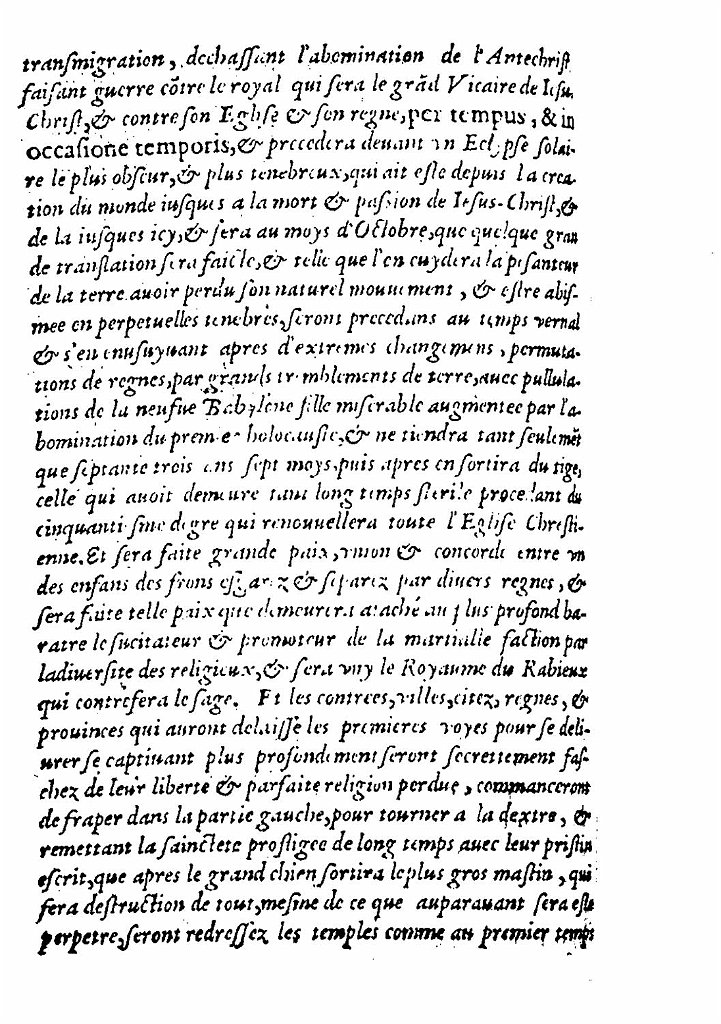 transmigration, dechassant l'abomination de l'Antechrist
faisant guerre cõtre le royal qui sera le grãd Vicaire de Iesu
Christ, & contre son Eglise & son regne, per tempus, & in
occasione temporis, & precedera deuant vn Eclypse solai-
re le plus obscur, & plus tenebreux, qui ait esté depuis la crea
tion du monde iusques a la mort & passion de Iesus-Christ, &
de la iusques icy, & sera au moys d'Octobre, que quelque gran
de translation sera faicte, & telle que l'en cuydera la pesanteur
de la terre auoir perdu son naturel mouuement, & estre abis-
mee en perpetuelles tenebres, seront precedans au temps vernal
& s'en ensuyuant apres d'extremes changemens, permuta-
tions de regnes, par grands tremblements de terre, auec pullula-
tions de la neufue Babylone fille miserable augmentee par l'a-
bomination du premier holocauste, & ne tiendra tant seulemẽt
que septante trois ans sept moys, puis apres en sortira du tige,
celle qui auoit demeuré tant long temps sterile procedant du
cinquantiesme degre qui renouuellera toute l'Eglise Christi-
enne. Et sera faite grande paix, vnion & concorde entre vn
des enfans des frons esgarez & separez par diuers regnes, &
sera faite telle paix que demeurera ataché au plus profond ba-
ratre le sucitateur & promoteur de la martialle faction par
la diuersité des religieux, & sera vny le Royaume du Rabieux
qui contrefera le sage. Et les contrees, villes, citez, regnes, &
prouinces qui auront delaissé les premieres voyes pour se deli-
urer se captiuant plus profondement seront secrettement fas-
chez de leur liberté & parfaite religion perdue, commanceront
de fraper dans la partie gauche, pour tourner a la dextre, &
remettant la saincteté profligee de long temps auec leur pristin
escrit, que apres le grand chien sortira le plus gros mastin, qui
fera destruction de tout, mesme de ce que auparauant sera esté
perpetre, seront redressez les temples comme au premier temps